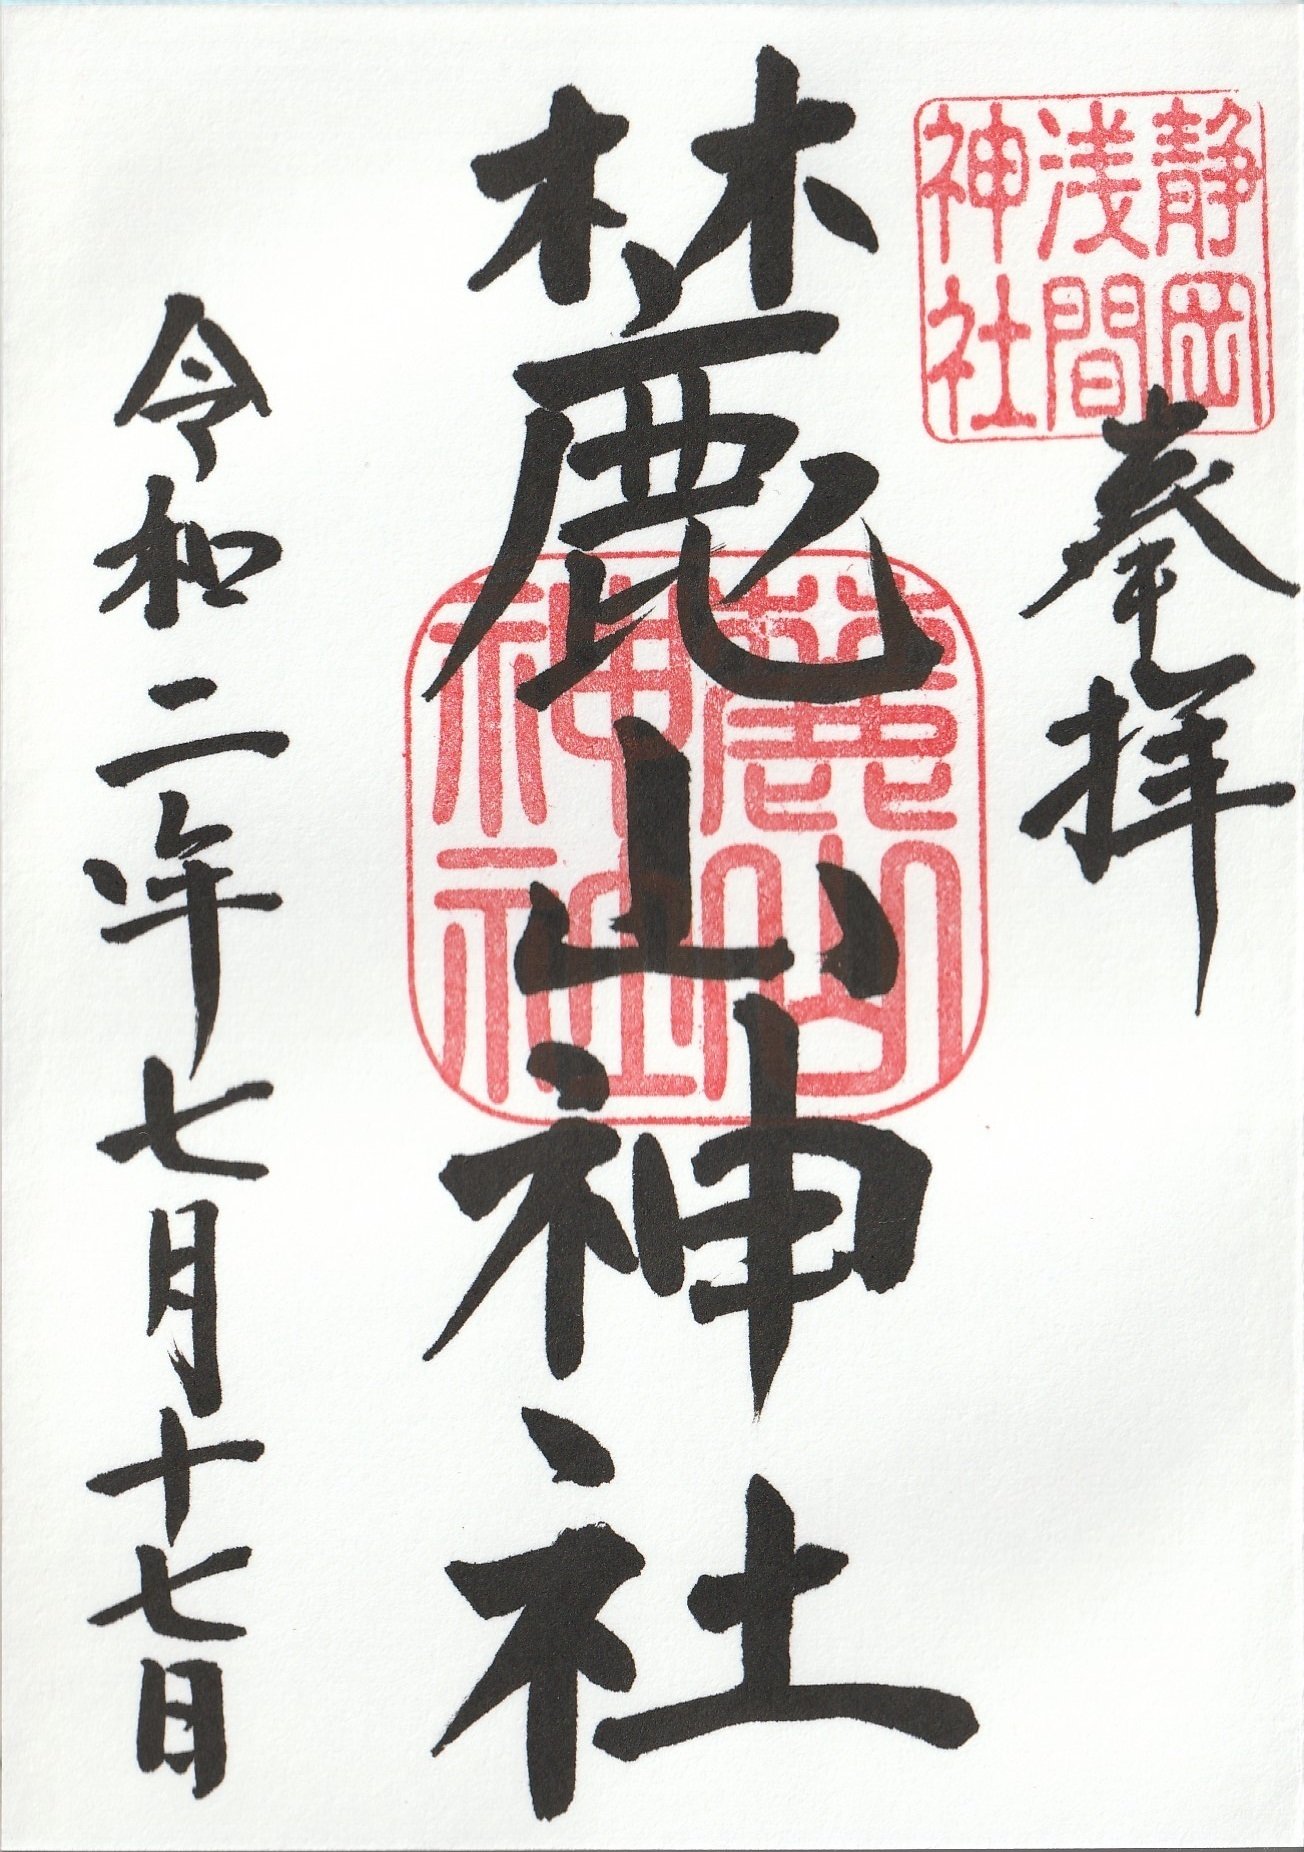 静岡
浅間
神社
奉拝
麓山神社
麓山
神社
令和二年七月十七日